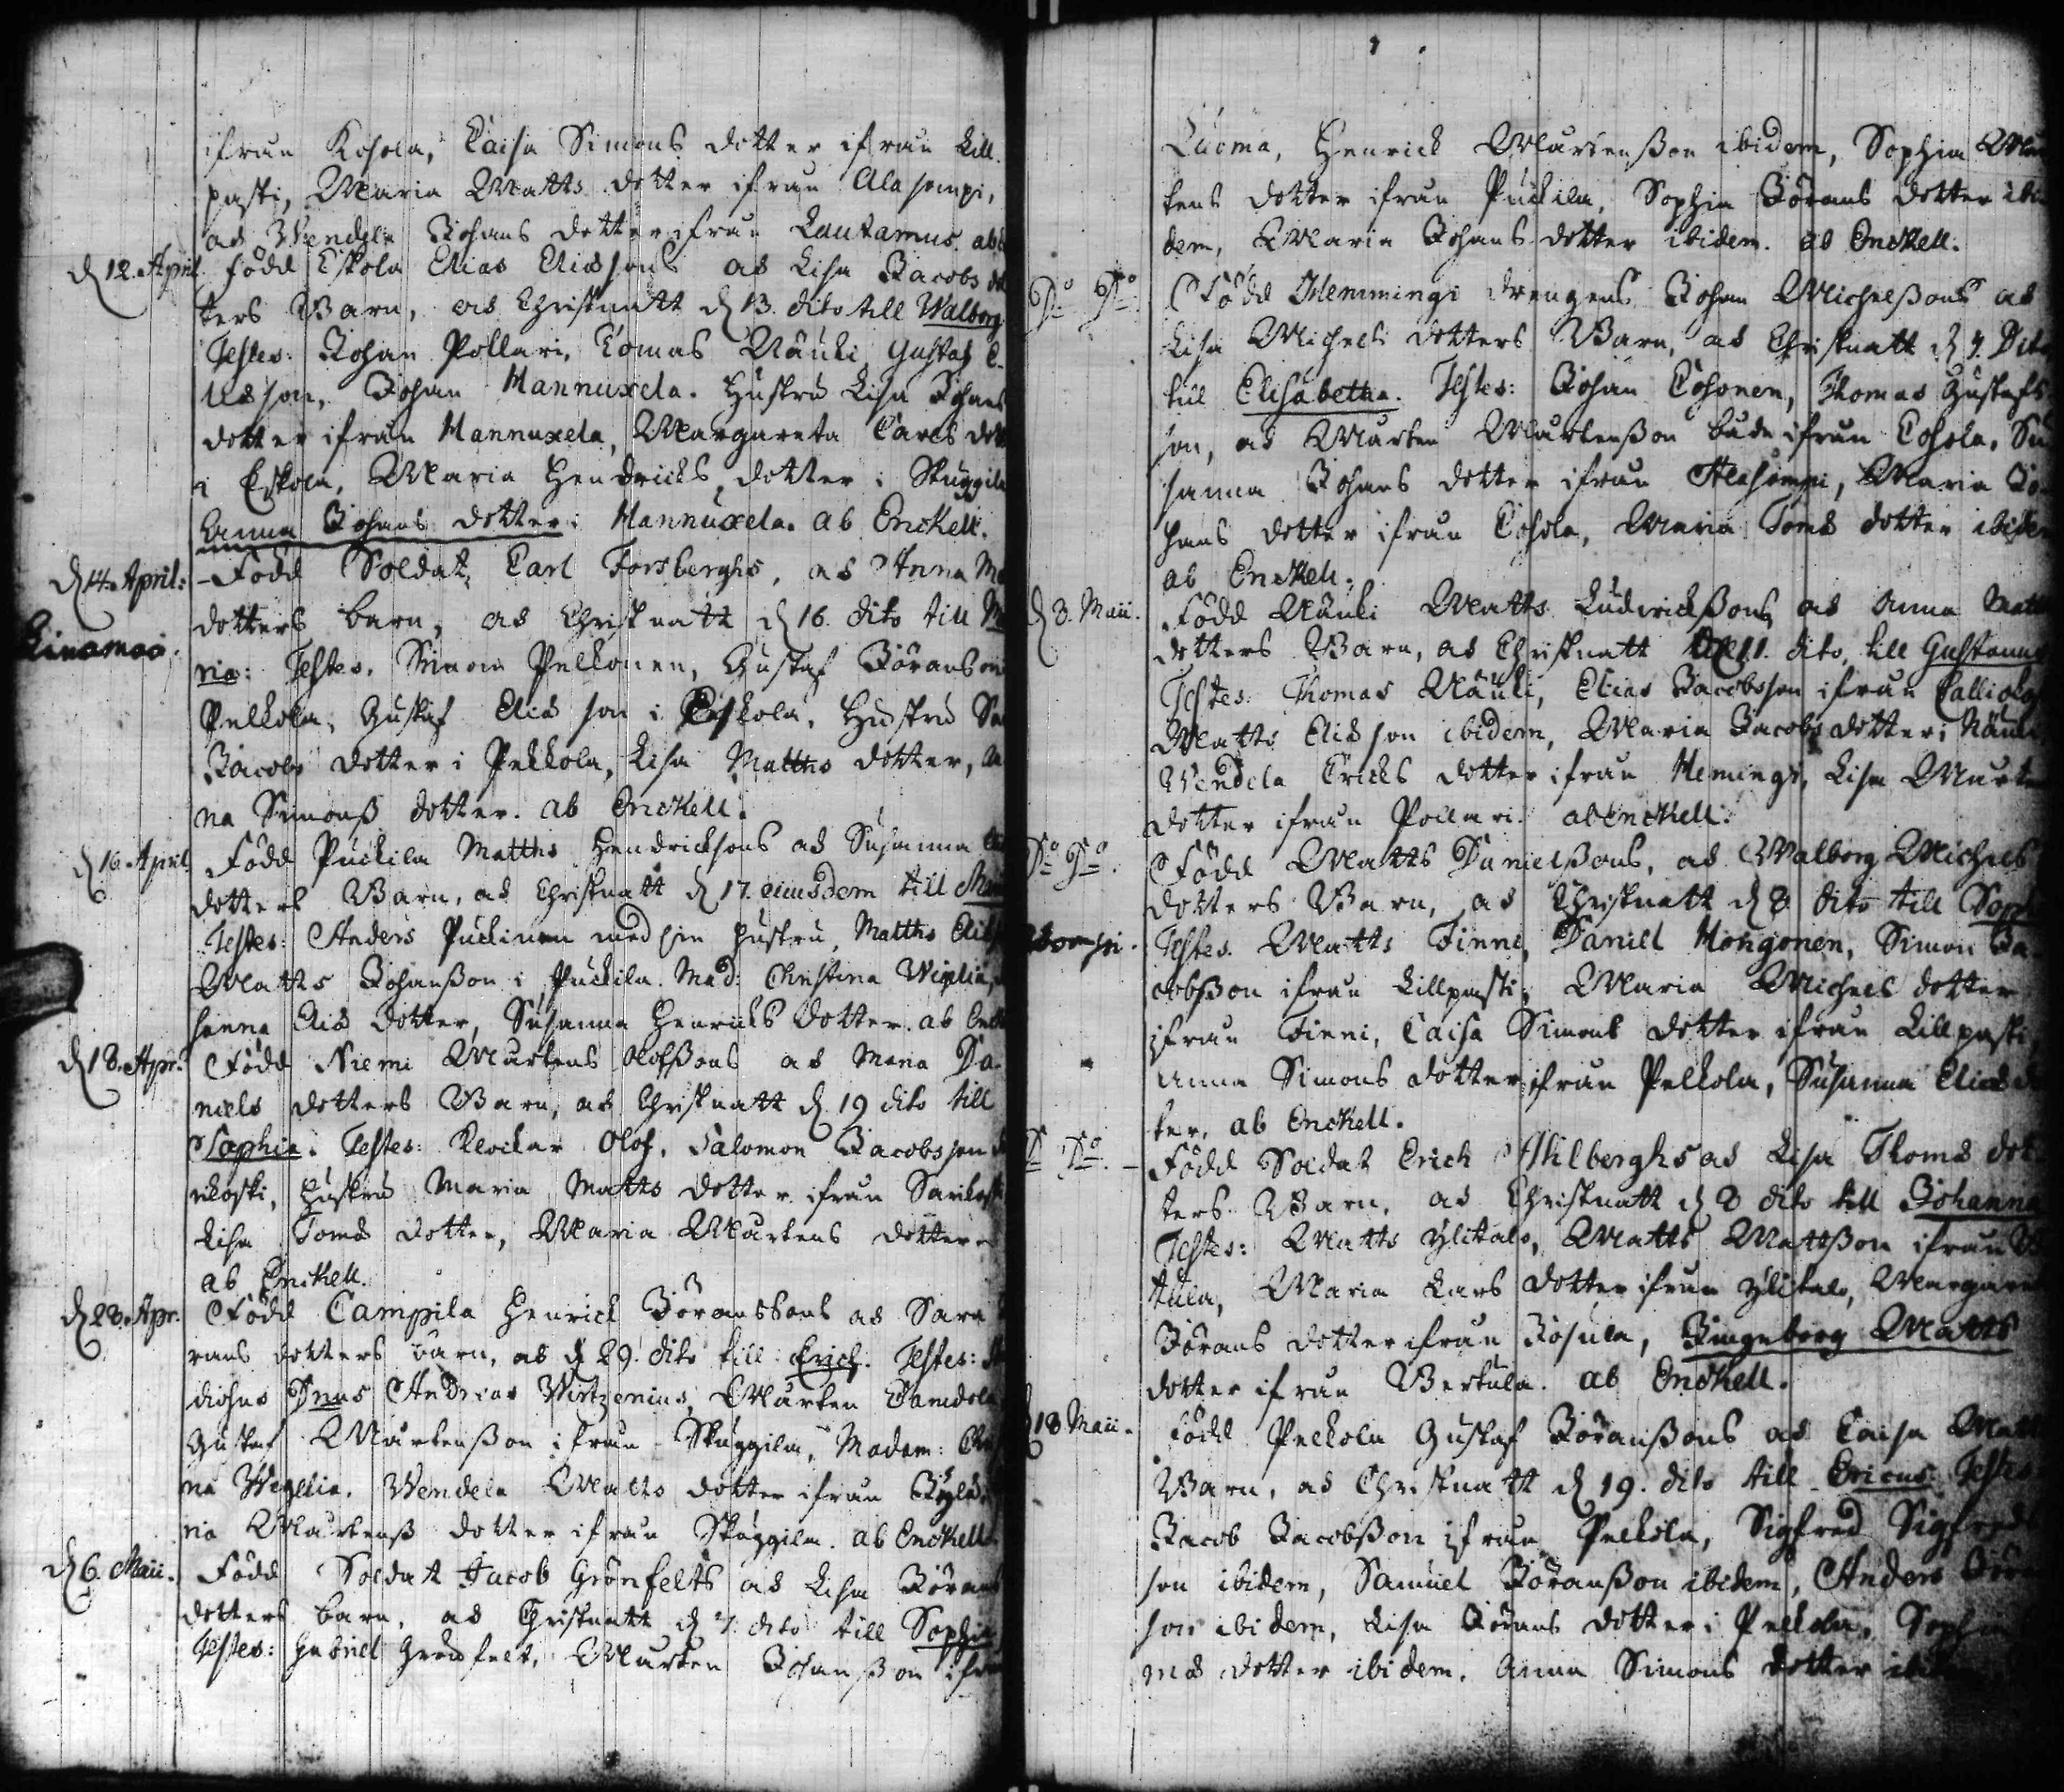 ifrån Kosola, Caisa Simons dotter ifrån Kill-
pasti, Maria Matts dotter ifrån Alasompi,
as Wendela Johans dotter ifrån Lautamus. ab
d 12. April. född Eskola Elias Eliæsons as Lisa Jacobs dot
ters Barn, as Christnatt d 13. dito till Walborg
Testes: Johan Pollari, Tomas Näuki, Gustaf E-
liæson, Johan Mannuxela. Hustru Lisa Johans
dotter ifrån Mannuxela, Margareta Carls dott
i Eskola, Maria Hendricks dotter i Skuggila
Anna Johans dotter i Mannuxela. ab Enckell.
d 14. April: Född Soldat Carl Forsberghs, as Anna Ma
dotters barn, as Christnatt d 16. dito till Ma
Kinamaa.
ria: Testes. Simon Pelkonen, Gustaf Jöransson
Pelkola, Gustaf Eliæ son i Eskola, Hustru Sa
Jacobs dotter i Pelkola, Lisa Matths dotter, An
na Simonß dotter. ab Enckell.
d 16. April. Född Puckila Matths Hendricksons as Susanna
dotters Barn, as Christnatt d 17. ejusdem till Ma
Testes: Anders Puckinen med sin hustru, Matths Eliæ
Matts Johanßon i Puckila. Mad: Christina Weglia,
hanna Eliæ dotter, Susanna Henricks dotter. ab Enck
d 18. Apr: Född Niemi Mårtens Olofßons as Maria Da-
niels dotters Barn, as Christnatt d 19 dito till
Sophia. Testes: Klockar Olof, Salomon Jacobsson
rikoski, hustru Maria Matts dotter ifrån Sarikoski
Lisa Tomæ dotter, Maria Mårtens dotter
ab Enckell.
d 28. Apr. Född Campila Henrick Jöranssons as Sara
rans dotters barn, as d 29. dito till Erich. Testes:
diosus Dnus Andreas Wirtzenius, Mårten
Gustaf Mårtenßon ifrån Skuggila, Madam: Chr
na Wegelia. Wendela Matts dotter ifrån
ria Mårtenß dotter ifrån Skuggila. ab Enckell
d 6. Maii. Född Soldat Jacob Grönfelts as Lisa Jörans
dotters barn, as Christnatt d 7. dito till Sophia
Testes: Gabriel Grönfelt, Mårten Johanßon ifrån
Luoma, Henrick Mårtenßon ibidem, Sophia Mår
tens dotter ifrån Puckila, Sophia Jörans dotter ibi
dem, Maria Johans dotter ibidem. ab Enckell.
Do Do. Född Hemmingi drängens Johan Michelßons as
Lisa Michels dotters Barn, as Christnatt d 7. Dito
till Elisabetha. Testes: Johan Cosonen, Thomas Gustafs
son, as Mårten Mårtenßon både ifrån Cosola, Su
sanna Johans dotter ifrån Alasompi, Maria Jo-
hans dotter ifrån Cosola, Maria Tomæ dotter ibidem
ab Enckell.
d 8. Maii. Född Näuki Matts Ludvickßons as Anna Matts
dotters Barn, as Christnatt d 11. dito, till Gustavus
Testes: Thomas Näuki, Elias Jacobsson ifrån
Matts Eliæ son ibidem, Maria Jacobs dotter i Näuki
Wendela Ericks dotter ifrån Hemingi, Lisa Mårten
dotter ifrån Pollari. ab Enckell.
Do Do. Född Matts Danielßons, as Walborg Michels
dotters Barn, as Christnatt d 8 dito till Soph
Testes. Matts Finni, Daniel Hongonen, Simon Ja-
cobsßon ifrån Killpasti, Maria Michels dotter
ifrån Finni, Caisa Simons dotter ifrån Killpasti,
Anna Simons dotter ifrån Pelkola, Susanna Eliæ dot
ter, ab Enckell.
Do Do. Född Soldat Erich Ahlberghs as Lisa Thomæ dot
ters Barn, as Christnatt d 8 dito till Johanna
Testes: Matts Ylitalo, Matts Mattßon ifrån
tula, Maria Lars dotter ifrån Ylitalo, Margare
Jörans dotter ifrån Josula, Ingeborg Matts
dotter ifrån Bertula. ab Enckell.
18 Maii. Född Pelkola Gustaf Jöranßons as Caisa Matt
Barn, as Christnatt d 19. dito till Ericus. Testes
Jacob Jacobßon ifrån Pelkola, Sigfred Sigfreds
son ibidem, Samuel Jöranßon ibidem, Anders Jör
son ibidem, Lisa Jörans dotter i Pelkola, Soph
mæ dotter ibidem. Anna Simons dotter ibid